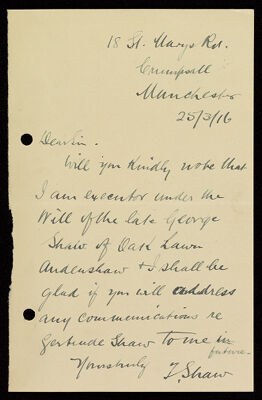 18 St. Marys Rd.
Crumpsall
Manchester
25/3/16
Dear Sir.
Will you kindly note that
I am executor under the
Will of the late George
Shaw of Oak Lawn
Audenshaw & I shall be
glad if you will address
any communications re
Gertrude Shaw to me in
future.
Yours truly
T. Shaw